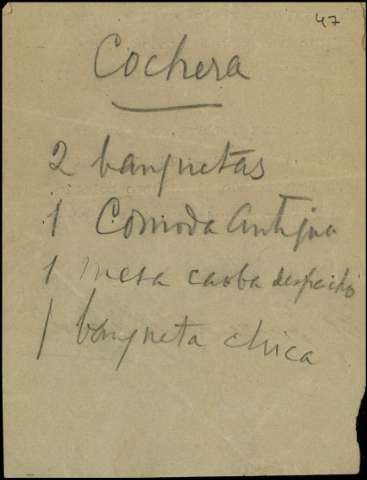 47
Cochera
2 banquetas
1 Comoda Antigua
1 mesa caoba despacho
1 banqueta chica